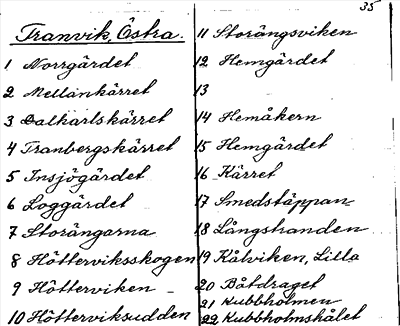 35
Tranvik, Östra.
1 Norrgärdet
2 Mellankärret
3 Dalkarlskärret
4 Tranbergskärret
5 Insjögärdet
6 Loggärdet
7 Storängarna
8 Hötterviksskogen
9 Hötterviken
10 Hötterviksudden
11 Storängsviken
12 Hemgärdet
13
14 Hemåkern
15 Hemgärdet
16 Kärret
17 Smedstäppan
18 Långstranden
19 Kålviken, Lilla
20 Båtdraget
21 Kubbholmen
22 Kubbholmshålet